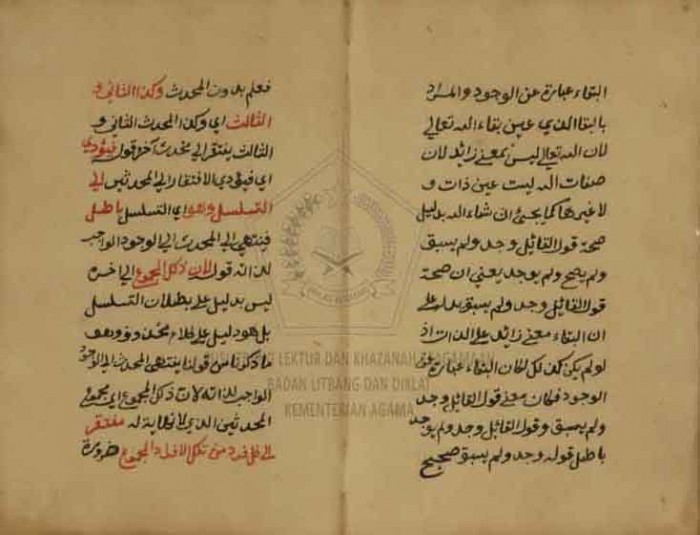 البقاء عبارة عن الوجود والمراد
بابقا الذي عين بقاء الله تعالى
لان الله تعالى ليس بمعنى زائد لان
صفات الله ليست عين ذات و
لا غيرها كما يجيئ ان شاء الله بدليل
صحة قول القائل وجد ولم يسبق
ولم يصح ولم يوجد يعني ان صحة
قول القائل وجد ولم يسبق يدل على
ان البقاء معنى زائد على الذات اذ
لو لم يكن كذلك لكان البقاء عبارة عن
الوجود فلكان معنى قول القائل وجد
ولم يسبق وقول القائل وجد ولم يوجد
باطل قوله وجد ولم يسبق صحيح
فعلم بدون المحدث وكذا الثاني و
الثالث اي وكذا المحدث الثاني و
الثالث يفتقر الى محدث آخر قول فيؤدي
اي فيؤدي الافتقار الى المحدثين الى
التسلسل وهو اي التسلسل باطل
فينتهي الى المحدث الى الوجود الواجب
لذاته قول لان ذكل المجموع الى اخره
ليس بدليل على بطلان التسلسل
بل هو دليل على
ما ذكرنا من قولنا ينتهي المحدث الى الوجود
الواجب لذاته لان ذكل المجموع اي مجموع
المحدثين الذي لا نهاية له مفتقر
الى كل فرد من تلك الافراد المجموع ضرورة
LEKTUR DAN KHAZANAH KEAGAMAAN
BADAN LITBANG DAN DIKLAT
KEMENTERIAN AGAMA